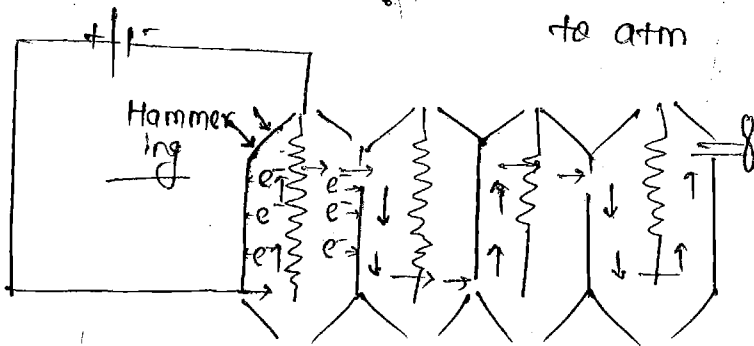 + -
to atm
Hammer
ing
e- e-
e- e-
e- e-